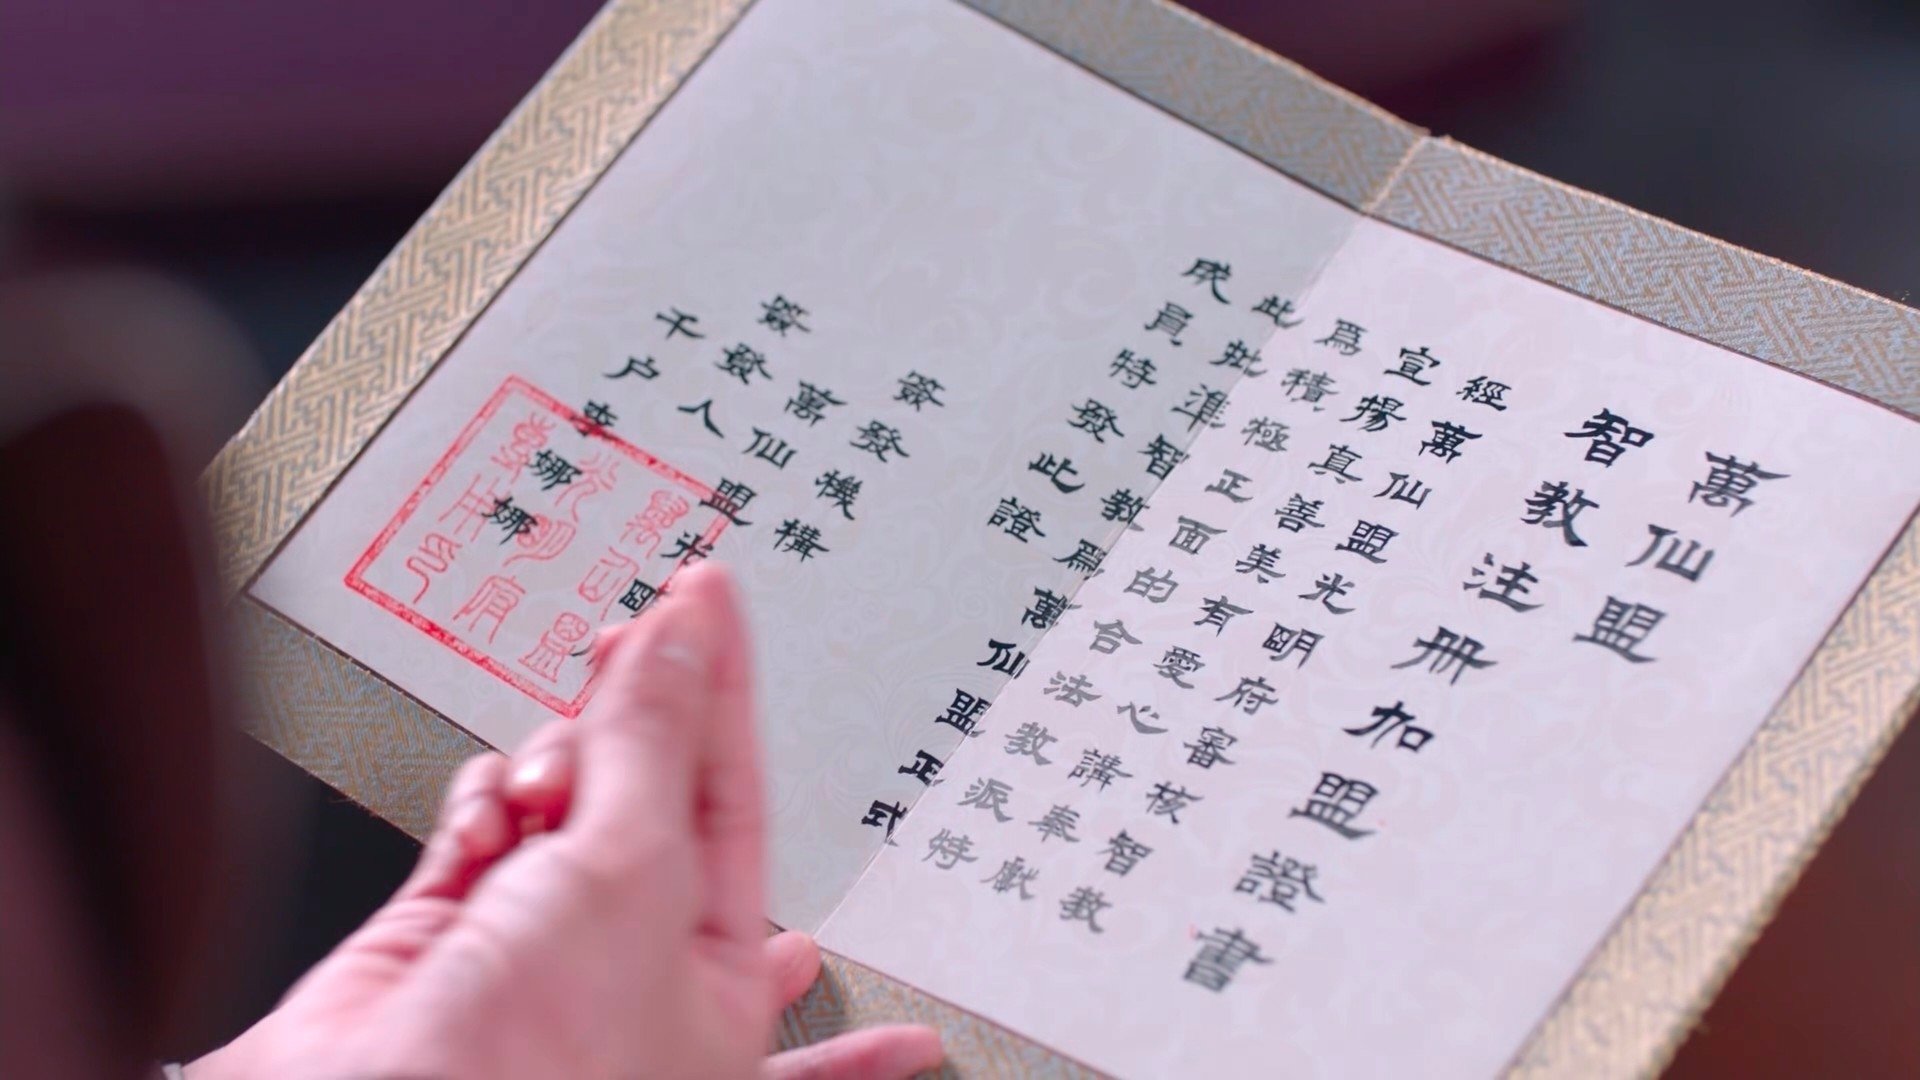 萬仙盟
智教注冊加盟證書
經萬仙盟光明府審核智教
宣揚真善美有愛心講奉獻
爲積極正面的合法教派特
此批準智教爲萬仙盟正式
成員特發此證
簽發機構
萬仙盟光明
簽發人
千户李娜娜
萬仙盟
光明府
專用印